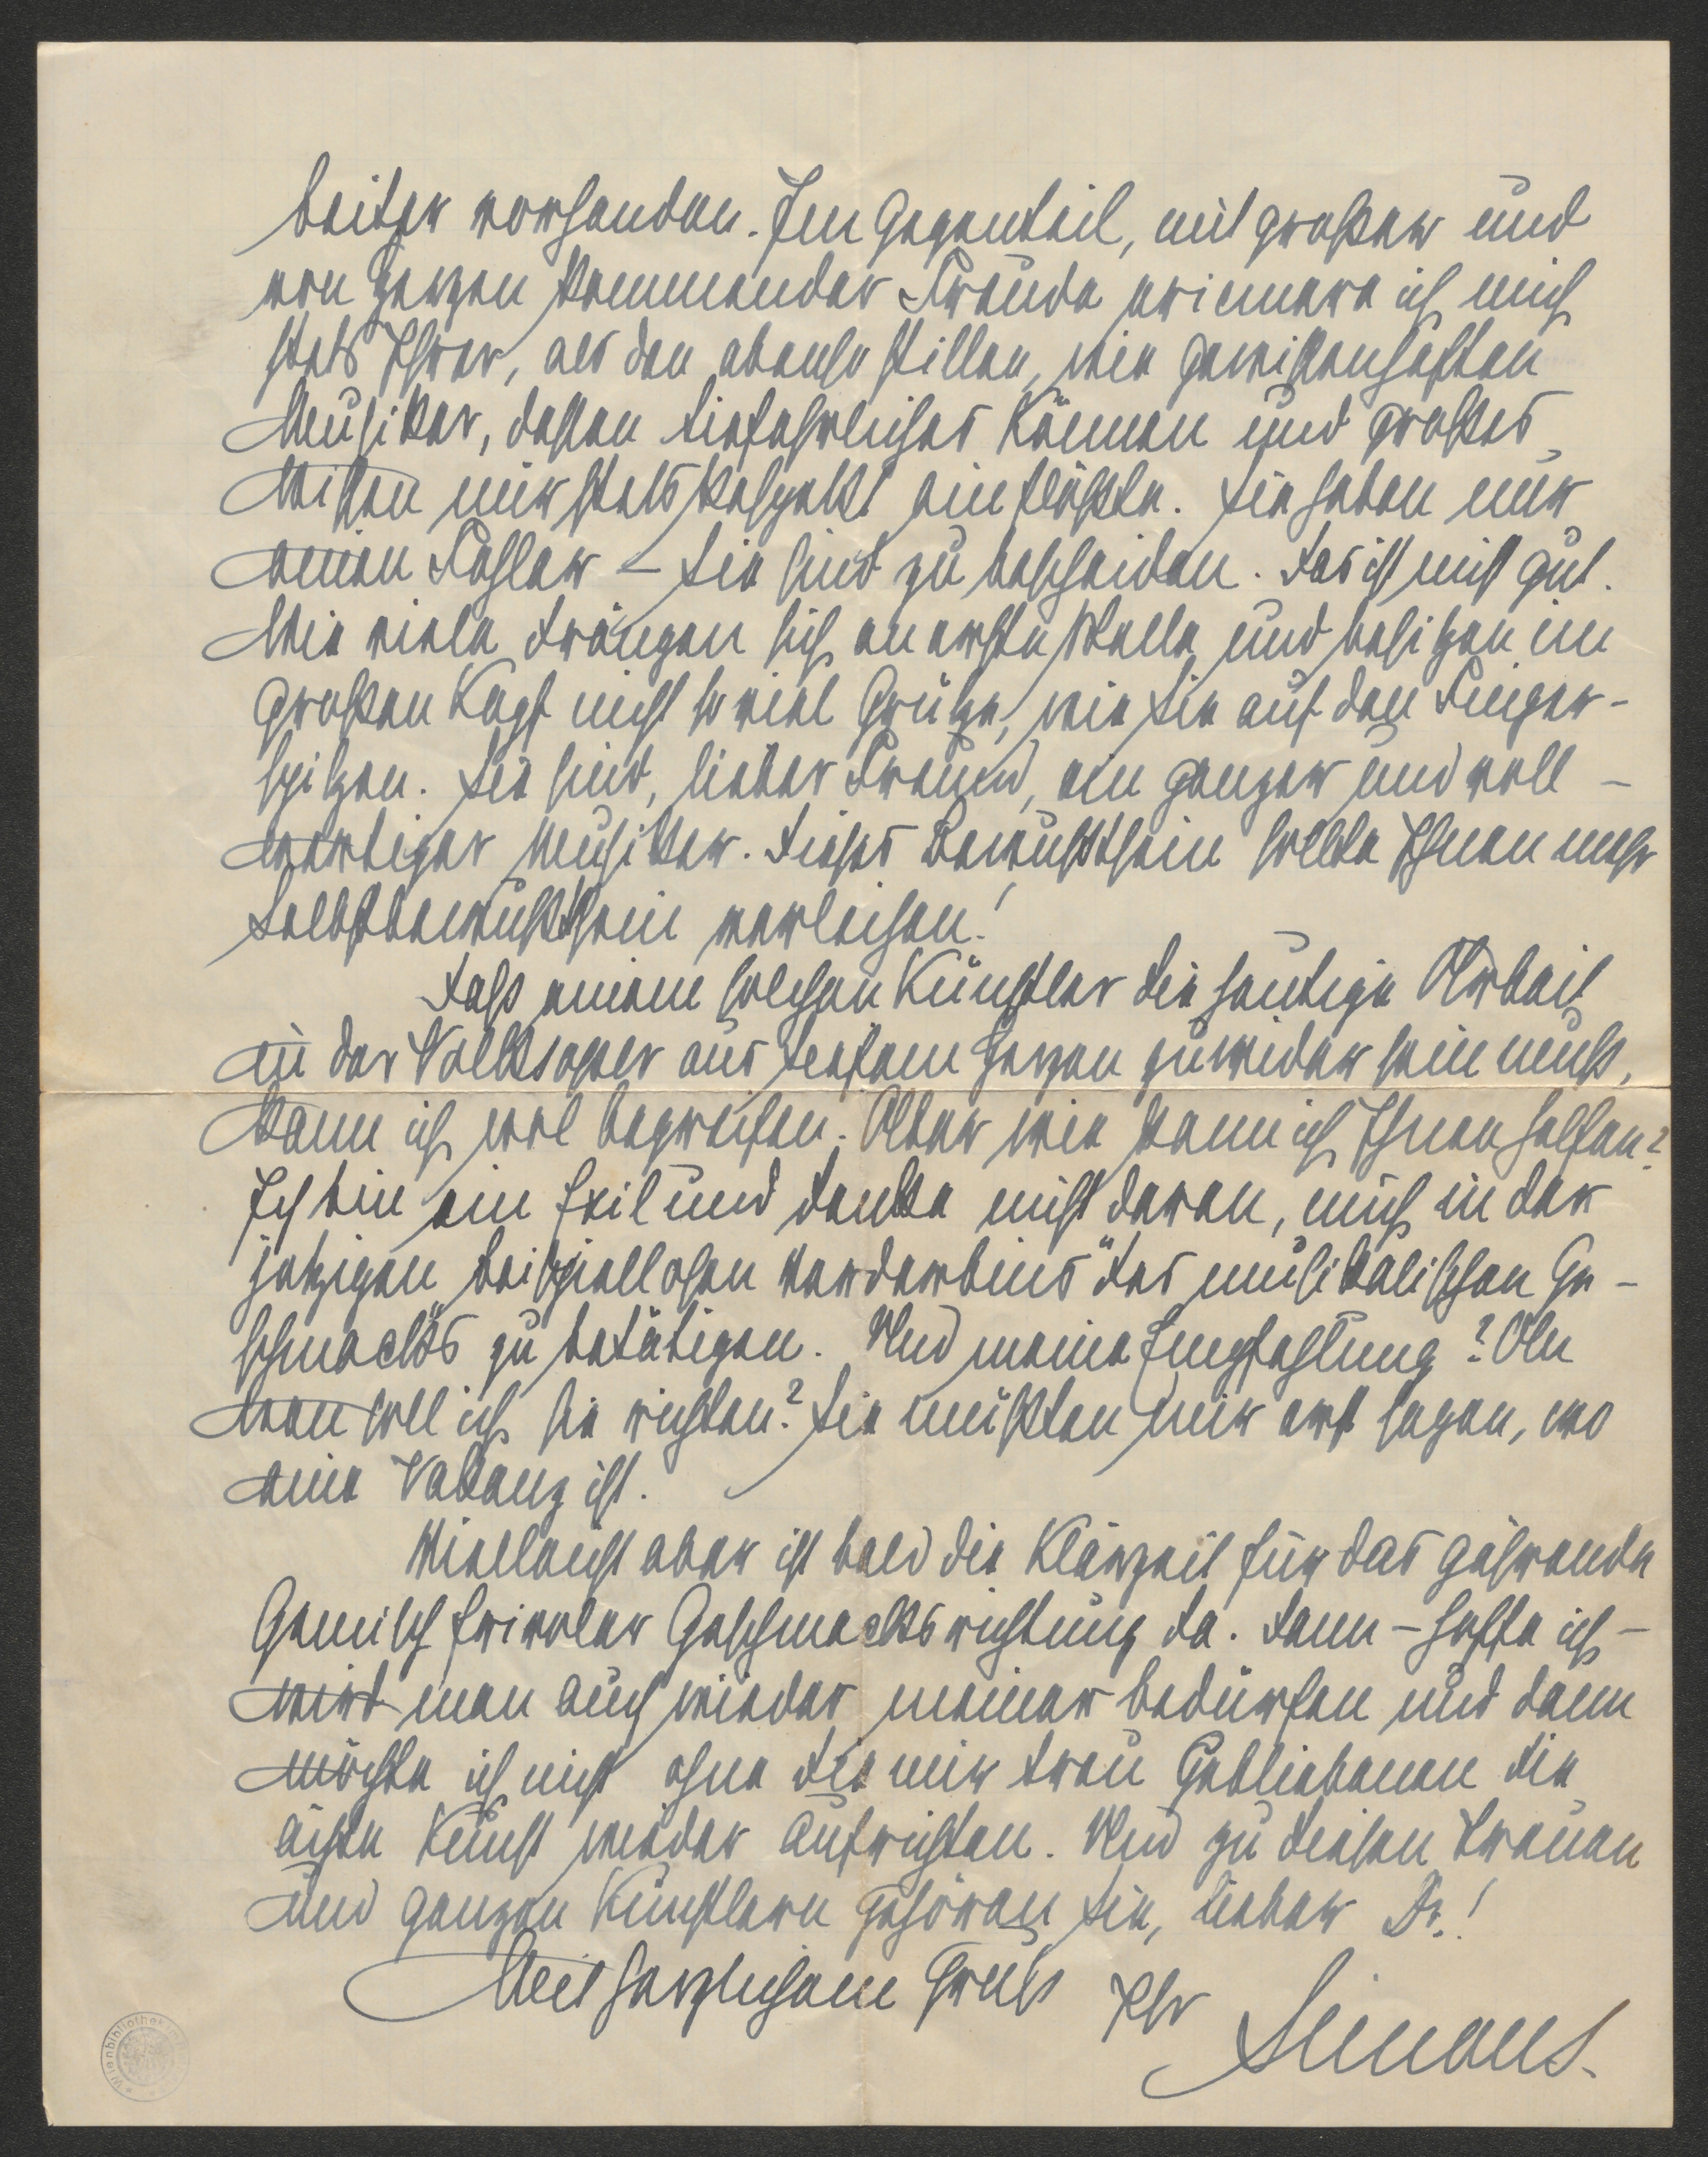 beiter vorhanden. Im Gegenteil, mit großer und
von Herzen kommender Freude erinnere ich mich
stets Ihrer, als den ebenso stillen, wie gewissenhaften
Musiker, dessen tiefehrliches Können und großes
Wissen mir stets Respekt einflößte. Sie haben nur
einen Fehler – Sie sind zu bescheiden. Das ist nicht gut.
Wie viele drängen sich an erste Stelle und besitzen im
großen Kopf nicht so viel Grütze, wie Sie auf den Finger-
spitzen. Sie sind, lieber Freund, ein ganzer und voll-
wertiger Musiker. Dieses Bewußtsein sollte Ihnen mehr
Selbstbewußtsein verleihen!
Dass einem solchen Künstler die heutige Arbeit
an der Volksoper aus tiefem Herzen zuwider sein muß,
kann ich wol begreifen. Aber wie kann ich Ihnen helfen?
Ich bin ein Exil und denke nicht daran, mich in der
jetzigen beispiellosen Verderbnis des musikalischen Ge-
schmacks zu betätigen. Und meine Empfehlung? An
wen soll ich sie richten? Sie müßten mir erst sagen, wo
eine Vakanz ist.
Vielleicht aber ist bald die Klärzeit für das gährende
Gemisch frivoler Geschmacksrichtung da. Dann – hoffe ich –
wird man auch wieder meiner bedürfen und dann
möchte ich nicht ohne die mir treu Gebliebenen die
ächte Kunst wieder aufrichten. Und zu diesen treuen
und ganzen Künstlern gehören Sie, lieber Dr.!
Mit herzlichem Gruß Ihr
Simons.
Wienbibliothek im